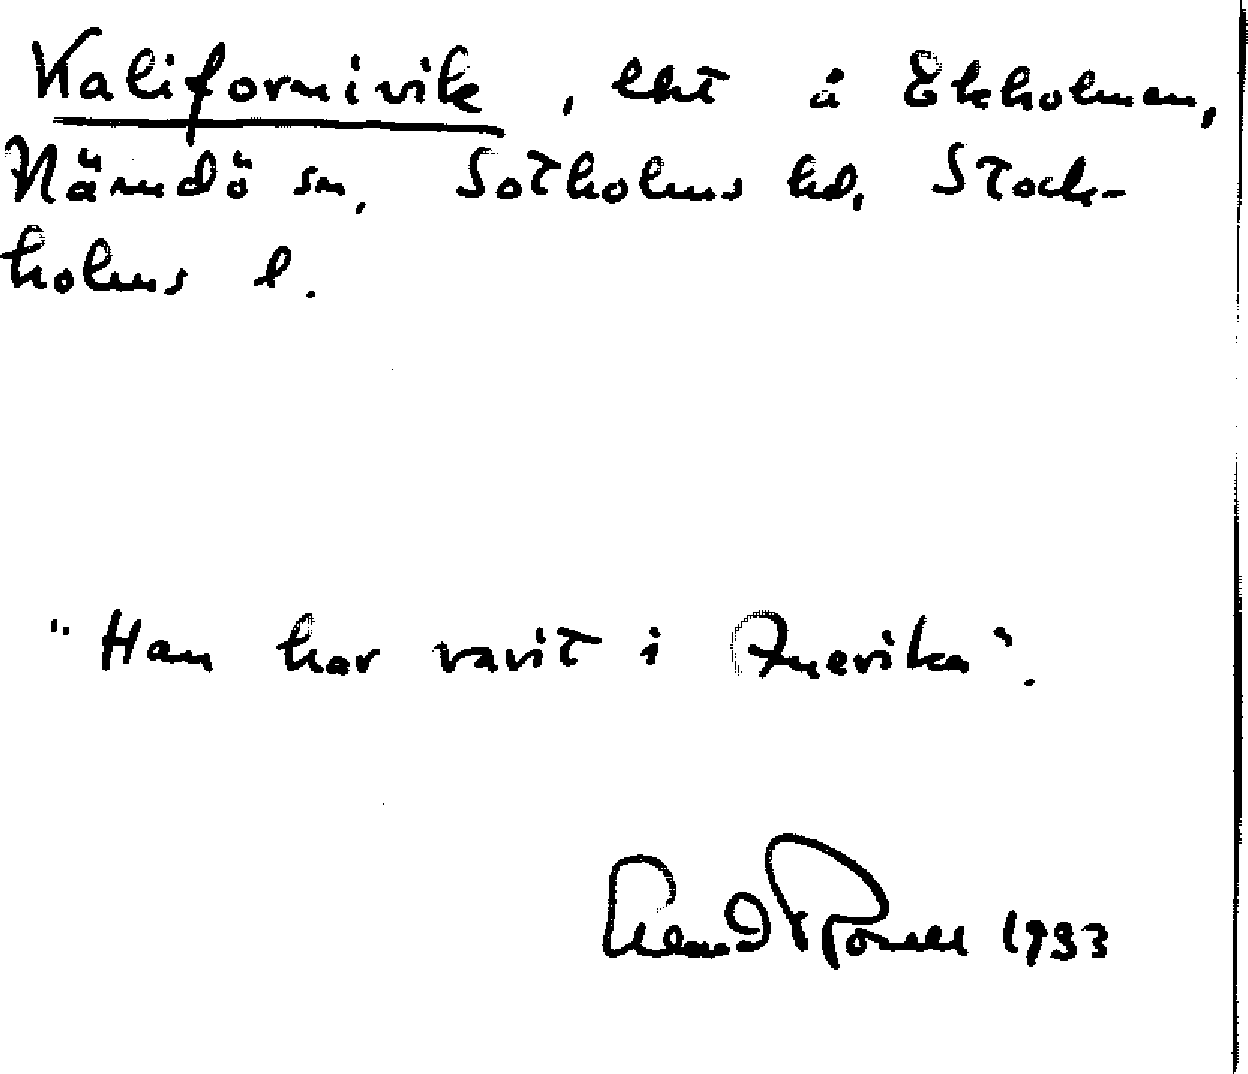 Kalifornivik, lht å Ekholmen,
Nämdö sn, Sotholms hd, Stock-
holms l.
"Han har varit i Amerika".
1933